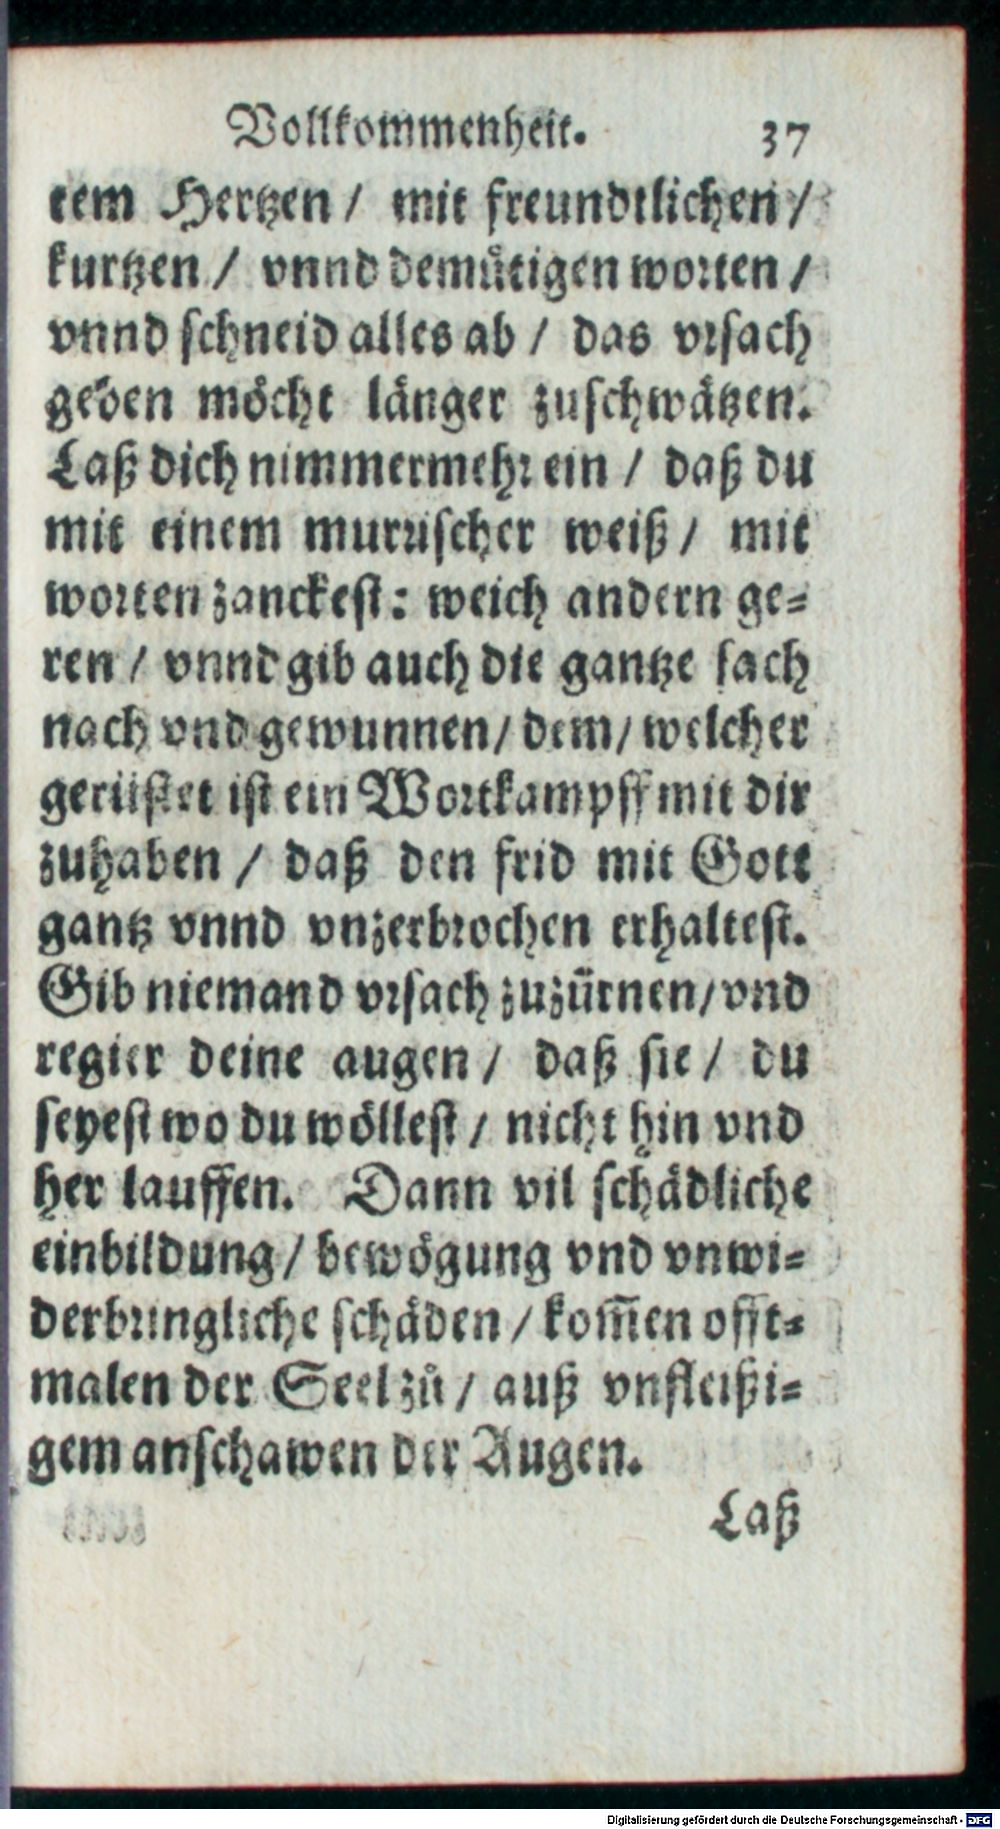 Vollkommenheit. 37
tem Hertzen / mit freundtlichen /
kurtzen / vnnd demütigen worten /
vnnd schneid alles ab / das vrsach
geben möcht länger zuschwätzen.
Laß dich nimmermehr ein / daß du
mit einem murrischer weiß / mit
worten zanckest: weich andern ge-
ren / vnnd gib auch die gantze sach
nach vnd gewunnen / dem / welcher
gerüstet ist ein Wortkampff mit dir
zuhaben / daß den frid mit Gott
gantz vnnd vnzerbrochen erhaltest.
Gib niemand vrsach zuzürnen / vnd
regier deine augen / daß sie / du
seyest wo du wöllest / nicht hin vnd
her lauffen. Dann vil schädliche
einbildung / bewögung vnd vnwi-
derbringliche schäden / kom̃en offt-
malen der Seel zů / auß vnfleißi-
gem anschawen der Augen.
Laß
Digitalisierung gefördert durch die Deutsche Forschungsgemeinschaft - DFG